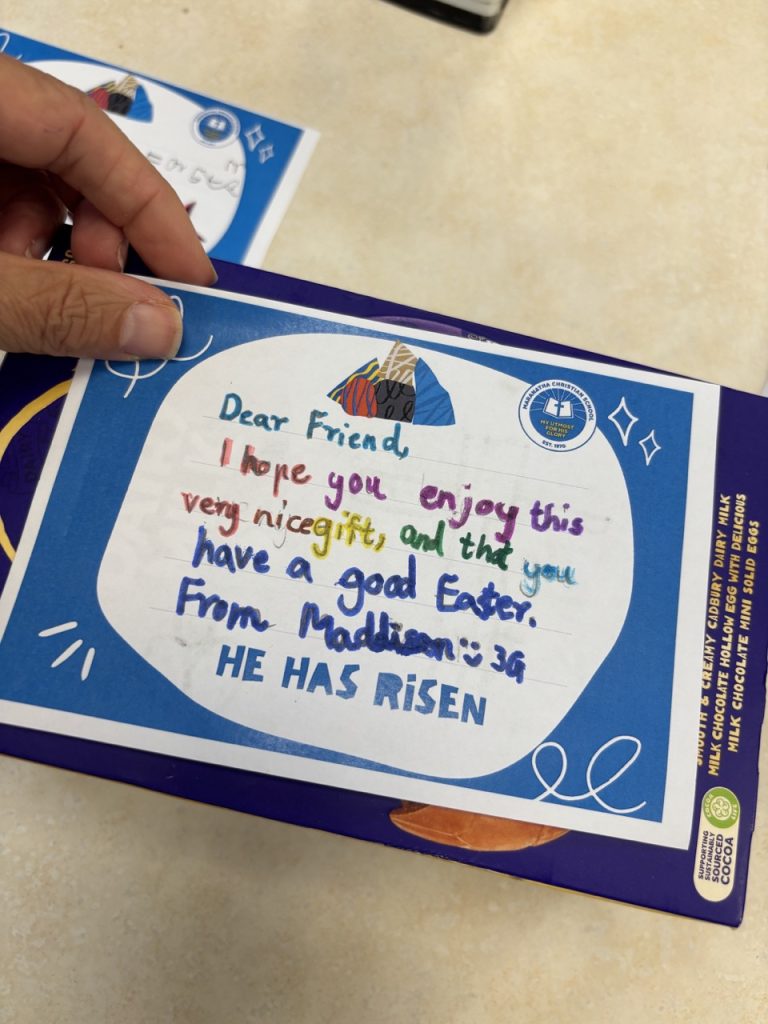 MARANATHA CHRISTIAN SCHOOL
MY UTMOST
FOR HIS
GLORY
EST. 1970
Dear Friend,
I hope you enjoy this
very nice gift, and that you
have a good Easter.
From Maddison :) 3G
HE HAS RiSEN
SMOOTH & CREAMY CADBURY DAIRY MILK
MILK CHOCOLATE HOLLOW EGG WITH DELICIOUS
MILK CHOCOLATE MINI SOLID EGGS
COCOA
LIFE
SUPPORTING
SUSTAINABLY
SOURCED
COCOA